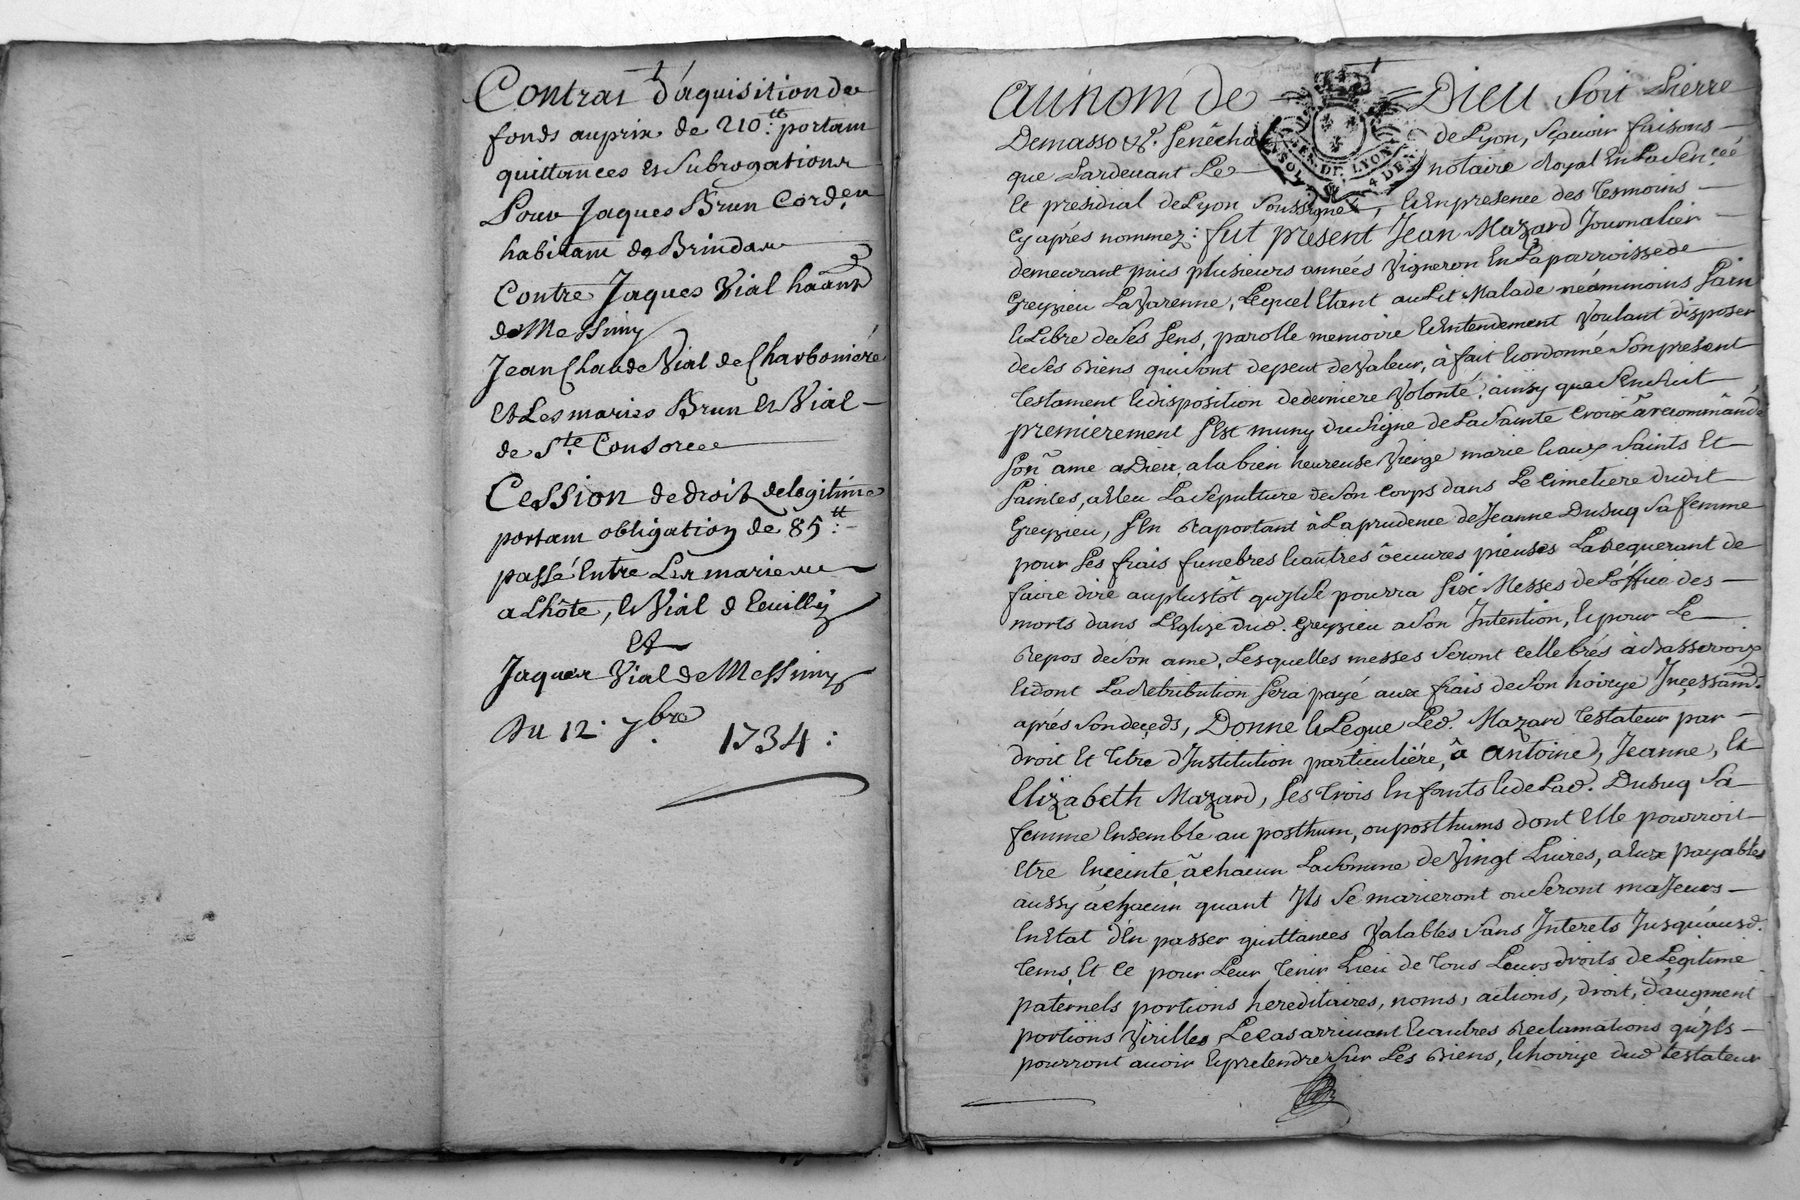 Contrat d'aquisition de
fonds au prix de 210.tt portant
quittances et subrogations
Pour Jaques Brun Cord.er
habitant de Brindas
Contre Jaques Vial haant
de Messimy
Jean Claude Vial de Charboniére
et Les mariés Brun et Vial
de Ste. Consorce
Cession de droit de legitime
portant obligation de 85.tt
passé Entre Les mariés
a Lhôte, et Vial d'Eeuilly
et
Jaques Vial de Messimy
Du 12. 7bre. 1734:
au nom de Dieu soit Pierre
Demasso &c. Senêchal de Lyon, sçavoir faisons
que Pardevant Le notaire Royal En La Sen.cée
Et présidial de Lyon soussigné, et En presence des Tesmoins
cy aprés nommez: fut present Jean Mazard Journalier
demeurant puis plusieurs années Vigneron En La parroisse de
Greyzieu La Varenne, Lequel Etant au Lit Malade néammoins Sain
et Libre de ses sens, parolle memoire et Entendement Voulant disposer
de ses Biens qui sont de peut de Valeur, à fait et ordonné son present
Testament et disposition de derniere Volonté, ainsy que s'Ensuit
premierement s'Est muny du Signe de La Sainte Croix à recommandé
son ame a Dieu, a la bien heureuse Vierge marie et aux saints Et
saintes, a Eleu La Sepulture de son corps dans Le Cimetiere dudit
Greyzieu, s'En Raportant à La prudence de Jeanne Dubuq sa femme
pour ses frais funebres et autres oeuvres pieuses La Requerant de
faire dire au plustôt qu'il se pourra six Messes de L'office des
morts dans L'Eglize dud. Greyzieu a son Intention, et pour Le
Repos de son ame, Lesquelles messes seront cellebrés à
et dont La Retribution sera payé aux frais de son hoirye Incessam.t
aprés son deceds, Donne et Legue Led. Mazard Testateur par
droit Et titre d'Institution particuliére, à Antoine, Jeanne, Et
Elizabeth Mazard, ses trois Enfants et de Lad. Dubuq sa
femme Ensemble au posthum, ou posthums dont Elle pourroit
Etre Enceinte à chacun La somme de Vingt Livres, a Eux payables
aussy à chacun quant Ils se marieront ou seront majeurs
En Etat d'En passer quittances Valables sans Interets Jusqu'ausd.
Tems, Et ce pour Leur Tenir Lieu de Tous Leurs droits de Légitime
paternels portions hereditaires, noms, actions, droit, d'augment
portions Virilles Le cas arrivant et autres Reclamations qu'ils
pourront avoir et pretendre sur Les Biens, et hoirye dud Testateur